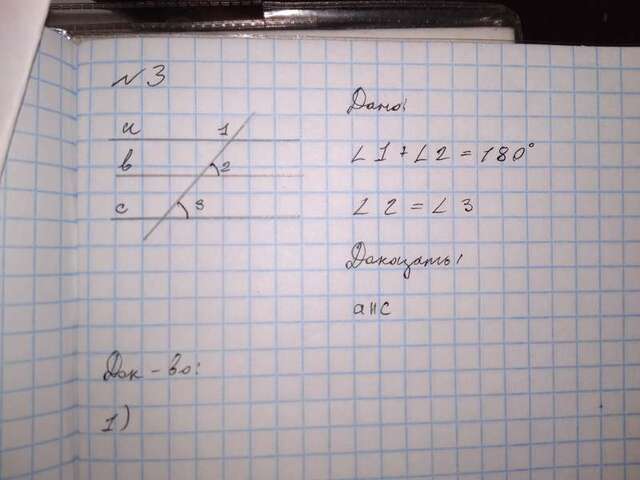 N 3
a
1
b
2
c
3
Дано:
∠1+∠2=180°
∠2=∠3
Доказать:
a||c
Док-во:
1)